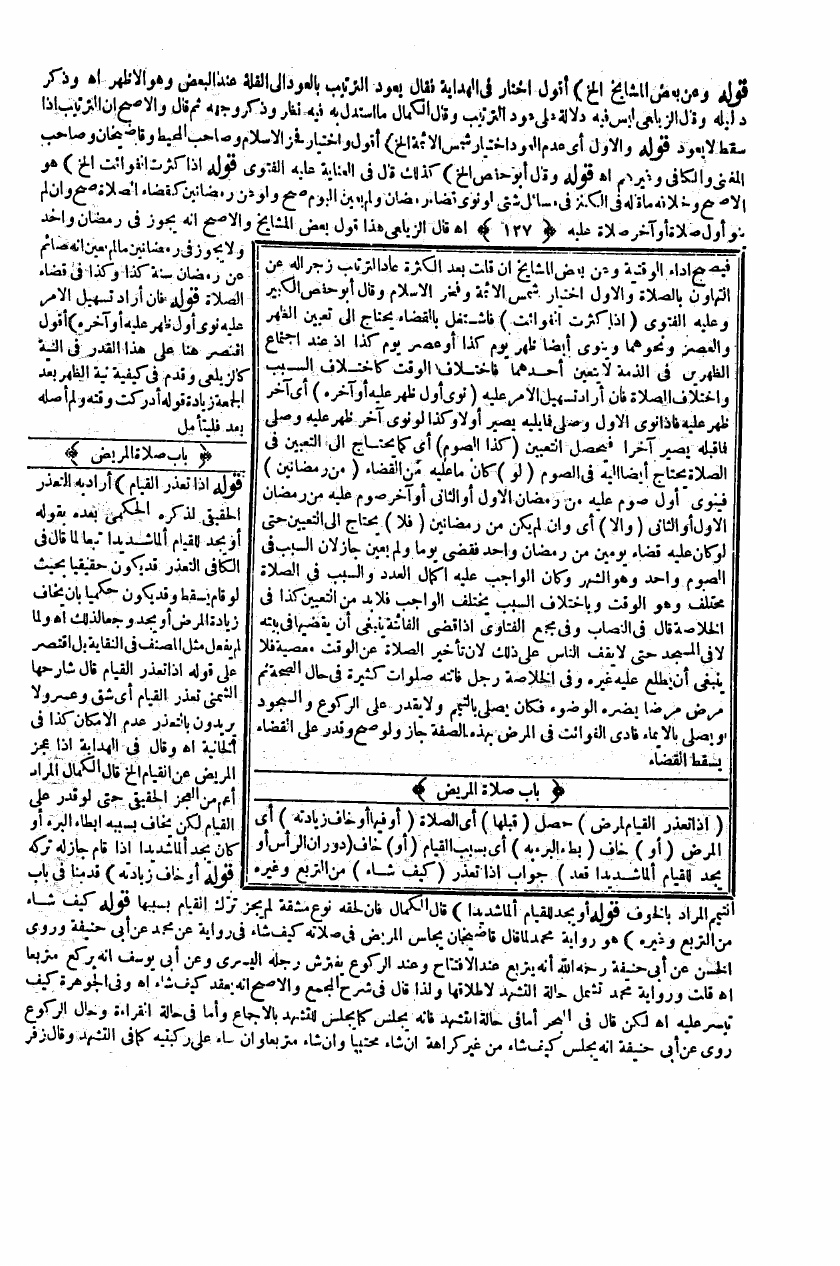 قوله وعن بعض المشايخ الخ) أقول اختار فى الهداية فقال يعود الترتيب بالعود الى القلة عند البعض وهو الاظهر اه وذكر
دليله وقال الزيلعى ليس فيه دلالة على عود الترتيب وقال الكمال ما استدل به فيه نظر وذكر وجهه ثم قال والاصح ان الترتيب اذا
سقط لا يعود قوله والاول أى عدم العود اختيار شمس الائمة الخ) أقول واختيار فخر الاسلام وصاحب المحيط وقاضيخان وصاحب
المغنى والكافى وغيرهم اه قوله وقال أبو حفص الخ) كذلك قال فى العناية عليه الفتوى قوله اذا كثرت الفوائت الخ) هو
الاصح وخلافه ما قاله فى الكنز فى مسائل شتى او نوى قضاء رمضان ولم يعين اليوم صح ولو عن رمضانين كقضاء الصلاة صح وان لم
ينو أول صلاة أو آخر صلاة عليه ﴿ ١٢٧ ﴾ اه قال الزيلعى هذا قول بعض المشايخ والاصح انه يجوز فى رمضان واحد
ولا يجوز فى رمضانين مالم يعين انه صائم
عن رمضان سنة كذا وكذا فى قضاء
الصلاة قوله فان أراد تسهيل الامر
عليه نوى أول ظهر عليه أو آخره) أقول
اقتصر هنا على هذا القدر فى النية
كالزيلعى وقدم فى كيفية نية الظهر بعد
الجمعة زيادة قوله أدركت وقته ولم أصله
بعد فليتأمل
﴿ باب صلاة المريض ﴾
قوله اذا تعذر القيام) أراد به التعذر
الحقيقى لذكره الحكمى بعده بقوله
أو يجد للقيام ألما شديدا تبعا لما قال فى
الكافى التعذر قد يكون حقيقيا بحيث
لو قام يسقط وقد يكون حكميا بان يخاف
زيادة المرض أو يجد وجعا لذلك اه ولما
لم يفعل مثل المصنف فى النقاية بل اقتصر
على قوله اذا تعذر القيام قال شارحها
الشمنى تعذر القيام أى شق وعسر ولا
يريدون بالتعذر عدم الامكان كذا فى
الخانية اه وقال فى الهداية اذا عجز
المريض عن القيام الخ قال الكمال المراد
أعم من العجز الحقيقى حتى لو قدر على
القيام لكن يخاف بسببه ابطاء البرء أو
كان يجد ألما شديدا اذا قام جاز له تركه
قوله أو خاف زيادته) قدمنا فى باب
فيصح اداء الوقتية وعن بعض المشايخ ان قلت بعد الكثرة عاد الترتيب زجرا له عن
التهاون بالصلاة والاول اختيار شمس الائمة وفخر الاسلام وقال أبو حفص الكبير
وعليه الفتوى (اذا كثرت الفوائت) فاشتغل بالقضاء يحتاج الى تعيين الظهر
والعصر ونحوهما وينوى أيضا ظهر يوم كذا أو عصر يوم كذا اذ عند اجتماع
الظهرين فى الذمة لا يتعين أحدهما فاختلاف الوقت كاختلاف السبب
واختلاف الصلاة فان أراد تسهيل الامر عليه (نوى أول ظهر عليه أو آخره) أى آخر
ظهر عليه فاذا نوى الاول وصلى فما يليه يصير أولا وكذا لو نوى آخر ظهر عليه وصلى
فما قبله يصير آخرا فيحصل التعيين (كذا الصوم) أى كما يحتاج الى التعيين فى
الصلاة يحتاج أيضا اليه فى الصوم (لو) كان ما عليه من القضاء (من رمضانين)
فينوى أول صوم عليه من رمضان الاول أو الثانى أو آخر صوم عليه من رمضان
الاول أو الثانى (والا) أى وان لم يكن من رمضانين (فلا) يحتاج الى التعيين حتى
لو كان عليه قضاء يومين من رمضان واحد فقضى يوما ولم يعين جاز لان السبب فى
الصوم واحد وهو الشهر وكان الواجب عليه اكمال العدد والسبب فى الصلاة
مختلف وهو الوقت وباختلاف السبب يختلف الواجب فلا بد من التعيين كذا فى
الخلاصة قال فى النصاب وفى مجمع الفتاوى اذا قضى الفائتة ينبغى أن يقضيها فى بيته
لا فى المسجد حتى لا يقف الناس على ذلك لان تأخير الصلاة عن الوقت معصية فلا
ينبغى أن يطلع عليه غيره وفى الخلاصة رجل فاتته صلوات كثيرة فى حال الصحة ثم
مرض مرضا يضره الوضوء فكان يصلى بالتيمم ولا يقدر على الركوع والسجود
ويصلى بالايماء فادى الفوائت فى المرض بهذه الصفة جاز ولو صح وقدر على القضاء
يسقط القضاء
﴿ باب صلاة المريض ﴾
(اذا تعذر القيام لمرض) حصل (قبلها) أى الصلاة (أو فيها أو خاف زيادته) أى
المرض (أو) خاف (بطء البرء به) أى بسبب القيام (أو) خاف (دوران الرأس أو
يجد للقيام ألما شديدا قعد) جواب اذا تعذر (كيف شاء) من التربع وغيره
التيمم المراد بالخوف قوله أو يجد للقيام ألما شديدا) قال الكمال فان لحقه نوع مشقة لم يجز ترك القيام بسببها قوله كيف شاء
من التربع وغيره) هو رواية محمد لما قال قاضيخان يجلس المريض فى صلاته كيف شاء فى رواية عن محمد عن أبى حنيفة وروى
الحسن عن أبى حنيفة رحمه الله أنه يتربع عند الافتتاح وعند الركوع يفترش رجله اليسرى وعن أبى يوسف انه يركع متربعا
اه قلت ورواية محمد تشمل حالة التشهد لاطلاقها ولذا قال فى شرح المجمع والاصح انه يقعد كيف شاء اه وفى الجوهرة كيف
تيسر عليه اه لكن قال فى البحر أما فى حالة التشهد فانه يجلس كما يجلس للتشهد بالاجماع وأما فى حالة القراءة وحال الركوع
روى عن أبى حنيفة انه يجلس كيف شاء من غير كراهة ان شاء محتبيا وان شاء متربعا وان شاء على ركبتيه كما فى التشهد وقال زفر